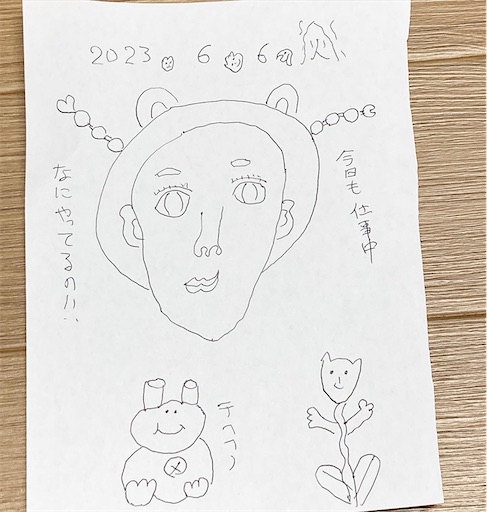 2023. 6. 6. 火
今日も仕事中
なにやってるのハハ:
テヘヘ